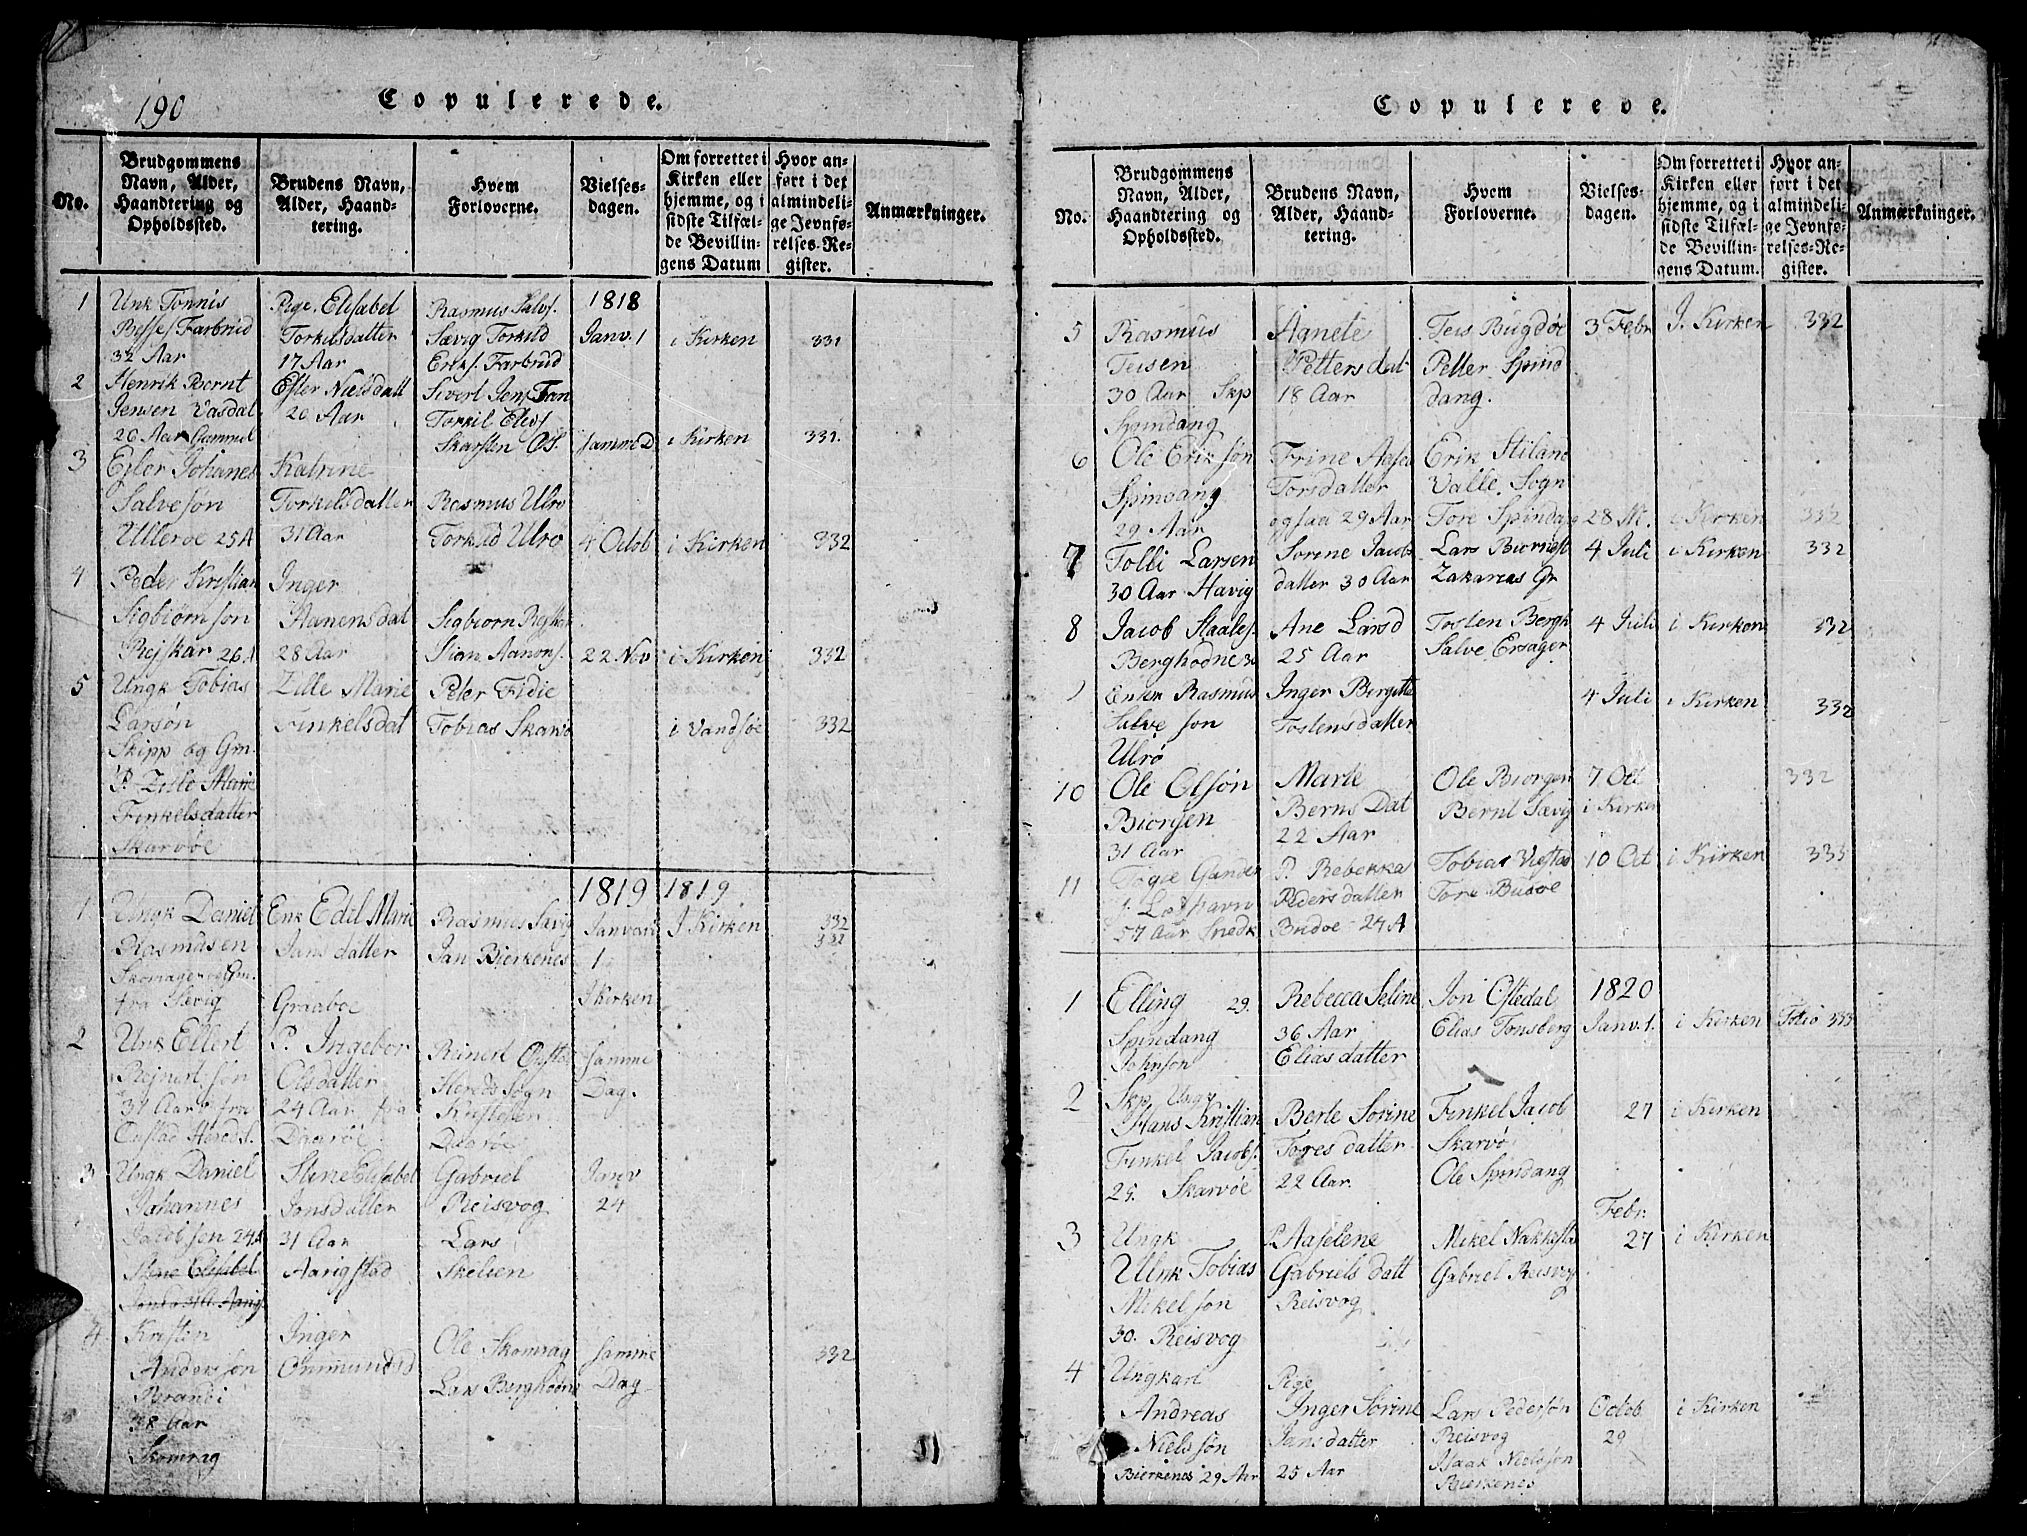 190
Copulerede.
No.
Brudgommens
Navn, Alder,
Haandtering og
Opholdssted.
Brudens Navn,
Alder, Haand-
tering.
Hvem
Forloverne.
Vielses-
dagen.
Om forrettet i
Kirken eller
hjemme, og i
sidste Tilfæl-
de Bevillin-
gens Datum
Hvor an-
ført i det
almindeli-
ge Jevnfø-
relses-Re-
gister.
Anmærkninger.
1
Unk Tonnis
Farbrud
32 Aar
Pige. Elisabel
Torkilsdatter
17 Aar
Rasmus Salvs.
Sævig Torkild
Eriks. Farbrud
1818
Janv. 1
i Kirken
331
2
Henrik Bernt
Jensen Vasdal
26 Aar Gammel
Ester Nielsdatt
20 Aar
Sivert Jens
Torkil Elevs
Skarsten
samme D
i Kirken
331.
3
Ejler Johanes
Salvesøn
Ulleroe 25 A
Katrine
Torkelsdatter
31 Aar
Rasmus Ulrø
Torkild Ulrø
4 Octob
i Kirken
332
4
Peder Kristian
Sigbiørnsøn
Rejskar 26
Inger
Hanensdat
28 Aar
Sigbiorn
Stian Aanons.
22 Nov
i Kirken
332
5
Ungk Tobias
Larsøn
Skipp og Gm.
P. Zille Marie
Finkelsdatter
Skarvøe
Zille Marie
Finkelsdat
Peter Fidie
Tobias Skarvø
i Vandsøe
332
1819 1819
1
Ungk Daniel
Rasmusen
Skomager og Gm.
fra Sævig
Enk Edel Marie
Jansdatter
Graaboe
Rasmus Sævig
Jan Bierkenes
Janvari
1
I Kirken
I Kirken
332
332
2
Unk Ellert
Rejnert søn
31 Aar fra
Onstad Hereds.
P. Ingebor
Olsdatter
24 Aar fra
Daarøe
Reinert Onstad
Hereds Sogn
Daarøe
samme
Dag.
3
Ungk Daniel
Johannes
Jacobsøn 24 A
Stine Elisabel
Stine Elisabel
Jonsdatter
31 Aar
Aarigstad
Gabriel
Reisvog
Lars
Skeljen
Janv
24
4
Kristen
Andersøn
Brandi
38 Aar
Skomrag
Inger
Onmundsd
Ole Skomrag
Lars Berghodne
samme
Dag
332
Copulerede.
No.
Brudgommens
Navn, Alder,
Haandtering og
Opholdssted.
Brudens Navn,
Alder, Haand-
tering.
Hvem
Forloverne.
Vielses-
dagen.
Om forrettet i
Kirken eller
hjemme, og i
sidste Tilfæl-
de Bevillin-
gens Datum.
Hvor an-
ført i det
almindeli-
ge Jevnfø-
relses-Re-
gister.
Anmærkninger.
5
Rasmus
Teisen
30 Aar Skp
Spindang
Agnete
Pettersdat
18 Aar
Teis Bugdøe
Petter Spind
dang.
3 Febr
I. Kirken
332
6
Ole Eriksøn
Spindang
29 Aar
Trine Aasel
Torsdatter
ogsaa 29 Aar
Erik Stiland
Valle Sogn
Tore Spindang
28 M.
i Kirken
332
7
Tolli Larsen
30 Aar Havig
Sorine Jacobs
datter 30 Aar
Lars Biornest
Zakarias Gr
4 Juli
i Kirken
332
8
Jacob Staales.
Berghodne 30
Ane Larsd
25 Aar
Tosten Bergh
Salve Ersager
4 Juli
i Kirken
332
Enken Rasmus
Salvesøn
Ulrø
Inger Bergitte
Tostensdatter
4 Juli
i Kirken
332
10
Ole Olsøn
Biorgen
31 Aar
Marte
Berns Dat
22 Aar
Ole Biorgen
Bernt Sævig
7 Oct
i Kirken
332
11
Togee Gunder
57 Aar Snedk
P. Rebekka
Pedersdatter
Budoe 24 A
Tobias
Tore Budoe
10 Oct
i Kirken
333
1
Elling 29.
Spindang
Johnson
Rebecca Seline
36 Aar
Eliasdatter
Jon Oftedal
Elias Tonsberg
1820
Janv. 1.
i Kirken
Folio 333
2
Skp Ungk
Hans Kristian
Finkel Jacobs.
25. Skarvöe
Berte Sorine
Toresdatter
22 Aar.
Finkel Jacob
Skarvø
Ole Spindang
27
i Kirken
3
Ungk
Unk Tobias
Mikelsøn
30. Reisvog
P. Aaselene
Gabriels datt
Reisvog
Mikel Nakkestad
Gabriel Reisvog
Febr.
27
i Kirken
4
Ungkarl
Andreas
Nielssøn
Bierkenes 29 Aar
Pige
Inger Sorine
Jansdatter
25 Aar
Lars Pedersøn
Reisvog
Isaak Nielssøn
Bierkenes
Octob
29
i Kirken